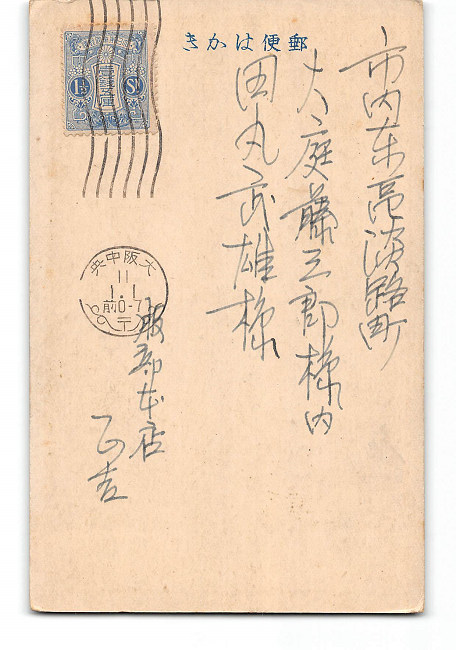 きかは便郵
市内東区淡路町
大庭藤三郎様内
田丸武雄様
服部本店
正吉
1½ Sn
大阪中央
11
1.1
前0-7